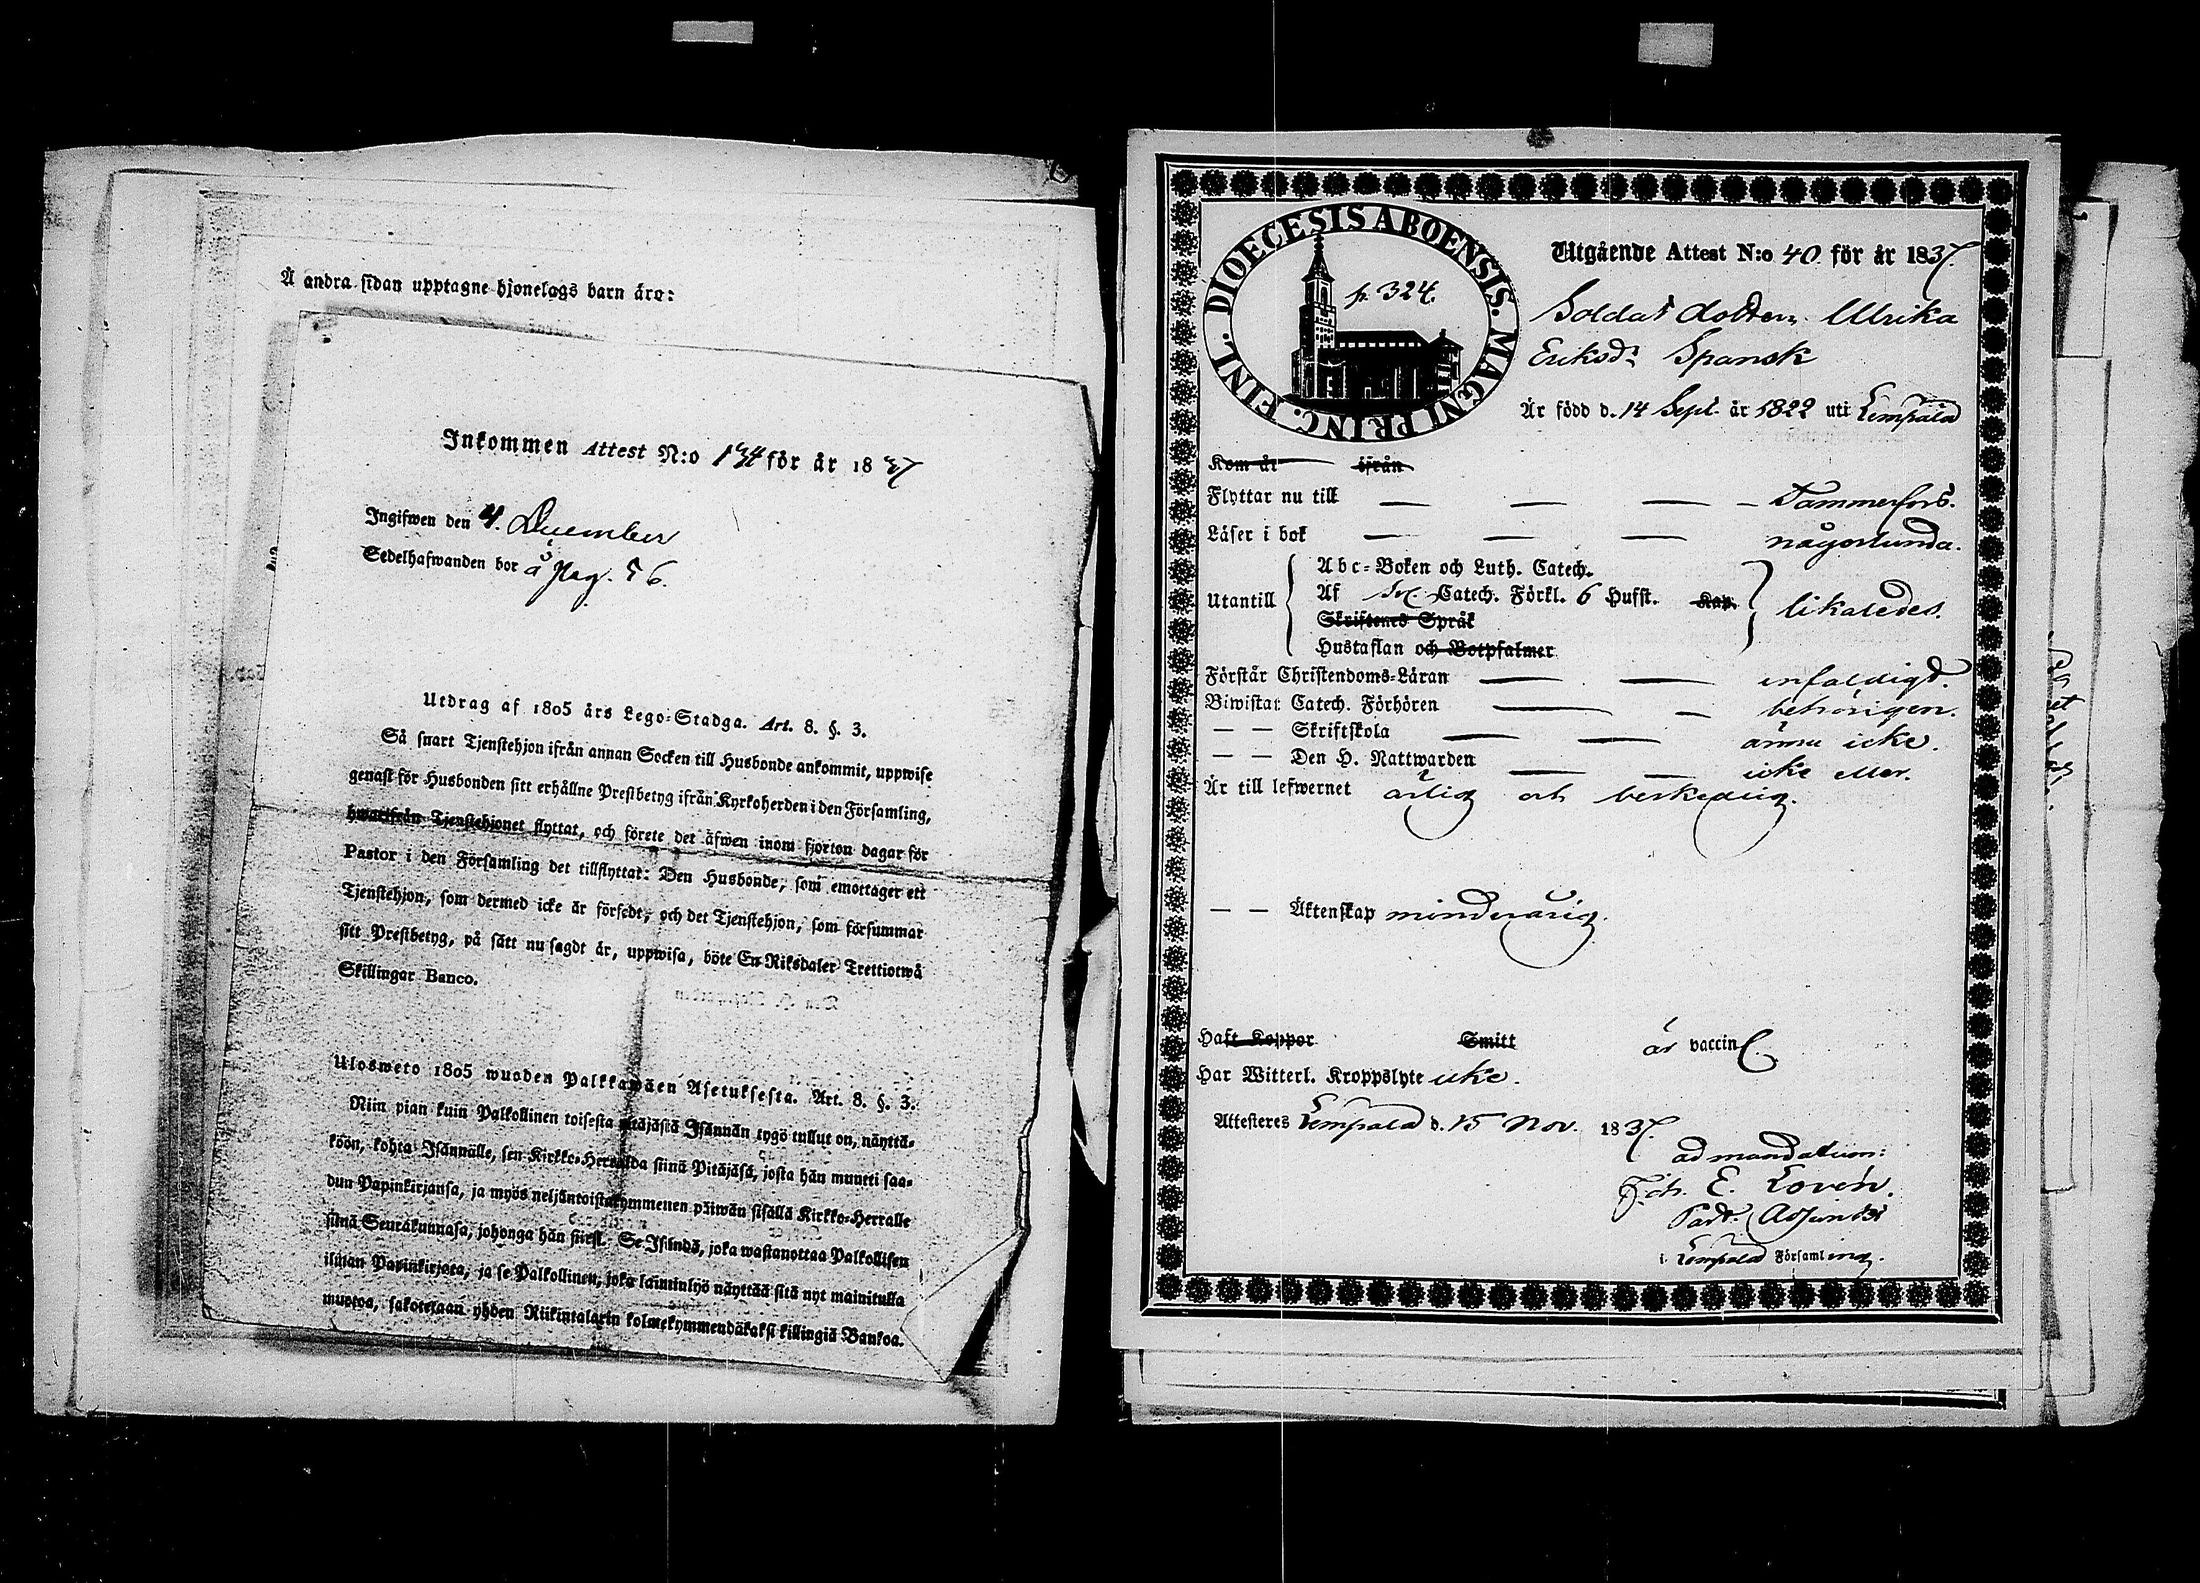 Å andra sidan upptagne hjonelags barn äro:
Inkommen Attest N:o 134 för år 1837
Ingifwen den 4. December
Sedelhafwanden bor å Pag. 56.
Utdrag af 1805 års Lego-Stadga. Art. 8. §. 3.
Så snart Tjenstehjon ifrån annan Socken till Husbonde ankommit, uppwise
genast för Husbonden sitt erhållne Prestbetyg ifrån Kyrkoherden i den Församling,
hwarifrån Tjenstehjonet flyttat, och förete det äfwen inom fjorton dagar för
Pastor i den Församling det tillflyttat: Den Husbonde, som emottager ett
Tjenstehjon, som dermed icke är försedt, och det Tjenstehjon, som försummar
sitt Prestbetyg, på sätt nu sagdt är, uppwisa, böte En Riksdaler Trettiotwå
Skillingar Banco.
Ulosweto 1805 wuoden Palkkawäen Asetuksesta. Art. 8. §. 3.
Niin pian kuin Palkollinen toisesta pitäjästä Isännän tygö tullut on, näyttä-
köön, kohta Isännälle, sen Kirkko-Herralda siinä Pitäjäsä, josta hän muutti saa-
dun Papinkirjansa, ja myös neljäntoistakymmenen päiwän sisällä Kirkko-Herralle
siinä Seurakunnasa, johonga hän siirsi. Se Isändä, joka wastanottaa Palkollisen
ilman Papinkirjata, ja se Palkollinen, joka laiminlyö näyttää sitä nyt mainitulla
muotoa, sakotetaan yhden Riikintalarin kolmekymmendäkaksi killingiä Bankoa.
DIOECESIS ABOENSIS. MAGNI PRINC. FINL.
p. 324.
Utgående Attest N:o 40 för år 1837.
Soldat dottern Ulrika
Eriksdr Spansk
Är född d. 14 Sept. år 1822 uti Lempälä
Kom år ifrån
Flyttar nu till — — — — Tammerfors.
Läser i bok — — — någorlunda.
Utantill
Abc-Boken och Luth. Catech.
Af Catech. Förkl. 6 Hufst. Kap.
Skriftenes Språk
Hustaflan och Botpsalmer
likaledes.
Förstår Christendoms-Läran — — enfaldigt.
Biwistat Catech. Förhören — — behörigen.
— — Skriftskola — — ännu icke.
— — Den H. Nattwarden — — icke eller.
Är till lefwernet ärlig och beskedlig.
— — Äktenskap minderårig.
Haft Koppor Smitt är vaccin
Har Witterl. Kroppslyte icke.
Attesteres Lempälä d. 15 Nov. 1837.
ad mandatum:
Joh. E. Lovén.
Past. Adjunct
i Lempälä Församling.